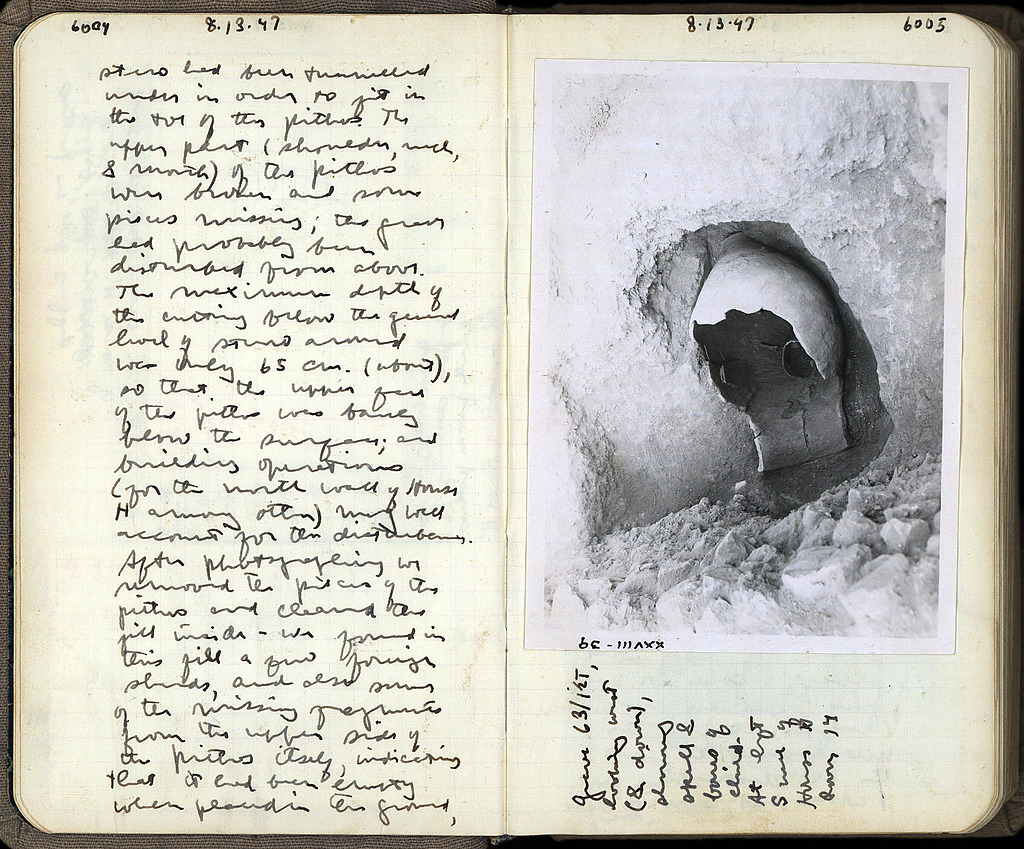 6004
8.13.47
stereo had been tunnelled
under in order to get in
the toe of the pithos. The
upper part (shoulder, neck,
& mouth) of the pithos
were broken and some
pieces missing; the grave
had probably been
disturbed from above.
The maximum depth of
the cutting below the general
level of stereo around
was only 65 cm. (about),
so that the upper face
of the pithos was barely
below the surface; and
building operations
(for the north wall of House
H among others) may well
account for the disturbance.
After photographing we
removed the pieces of the
pithos and cleaned the
fill inside - we found in
this fill a few foreign
sherds, and also some
of the missing fragments
from the upper side of
the pithos itself, indicating
that it had been empty
when placed in the ground,
8.13.47
6005
XXVIII - 39
Grave 63/
looking west
(& down),
showing
skull &
bones of
child.
At left
S wall of
House H
Room 17